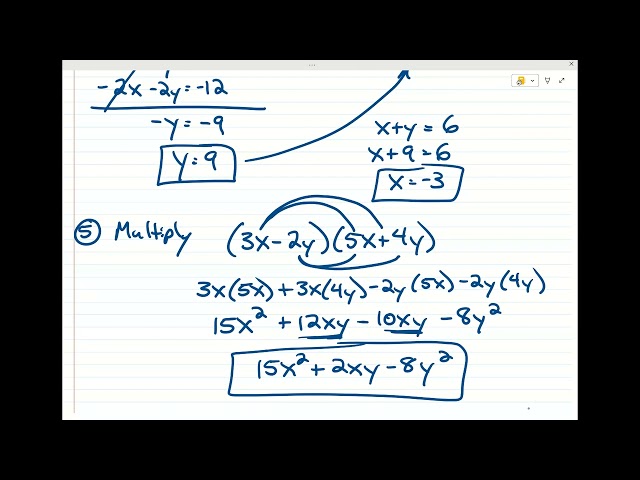 -2x - 2y = -12
-y = -9
y = 9
x + y = 6
x + 9 = 6
x = -3
⑤ Multiply (3x - 2y)(5x + 4y)
3x(5x) + 3x(4y) - 2y(5x) - 2y(4y)
15x² + 12xy - 10xy - 8y²
15x² + 2xy - 8y²